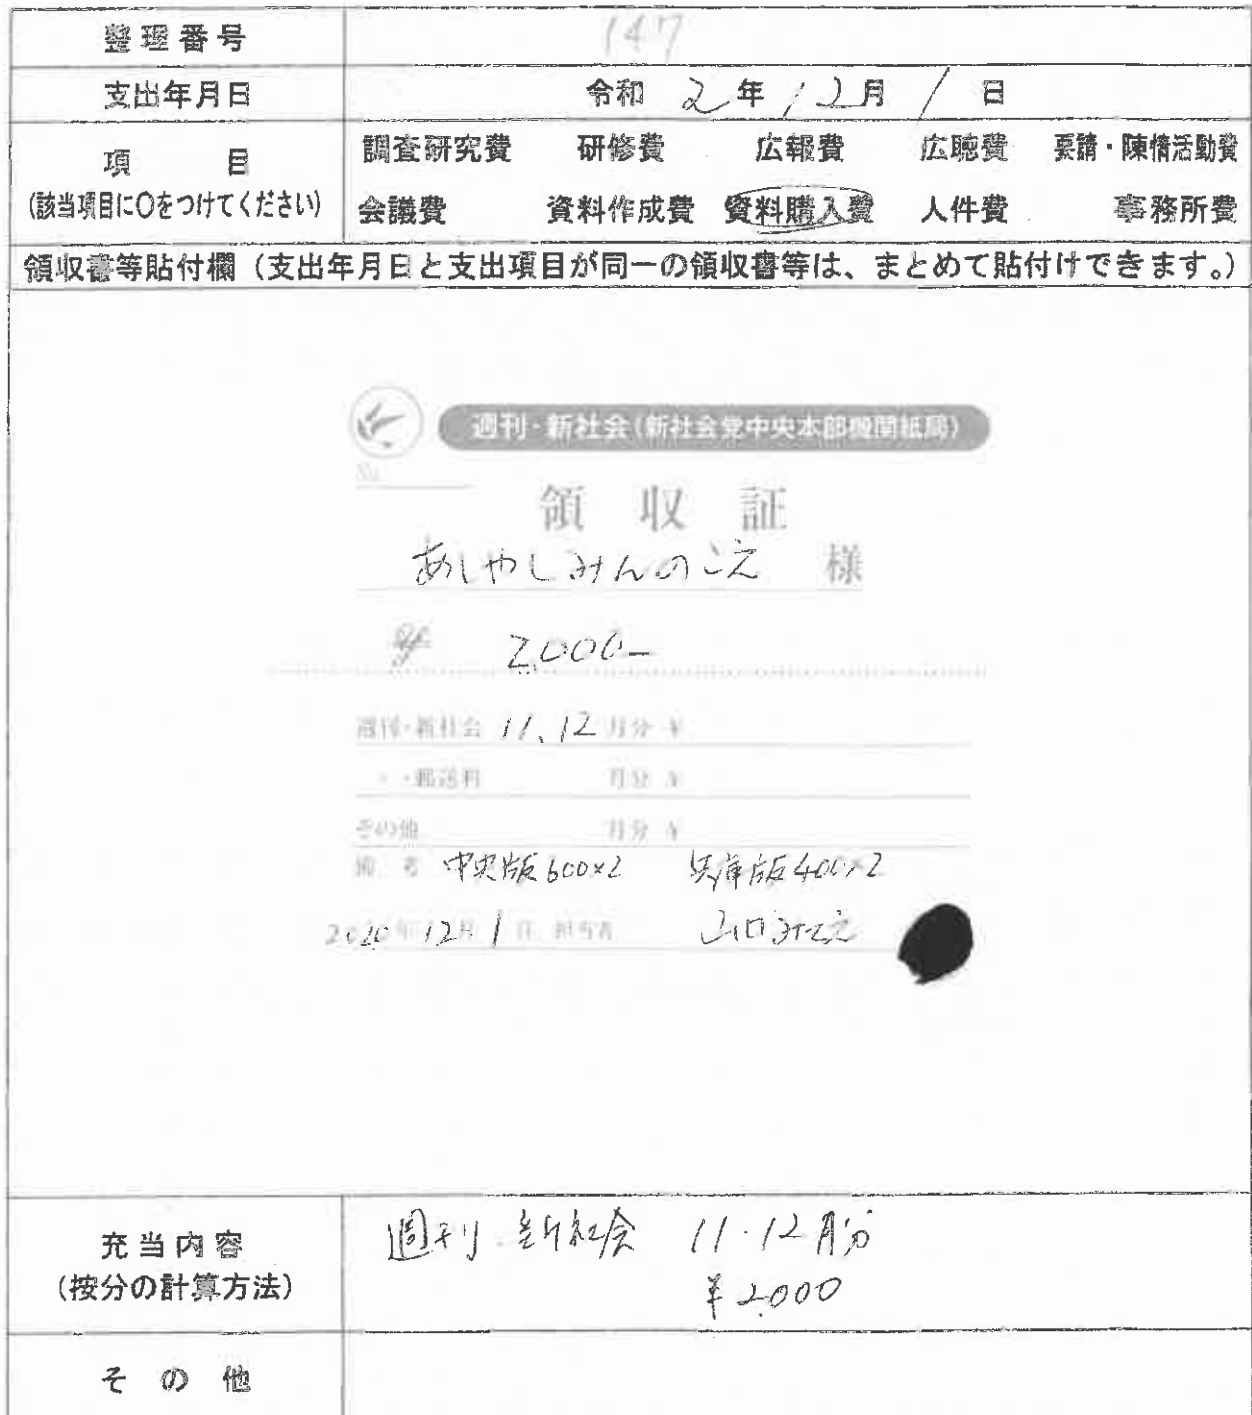 整理番号 147
支出年月日 令和 2年 12月 1日
項目 調査研究費 研修費 広報費 広聴費 要請・陳情活動費
(該当項目に〇をつけてください) 会議費 資料作成費 資料購入費 人件費 事務所費
領収書等貼付欄（支出年月日と支出項目が同一の領収書等は、まとめて貼付けできます。）
週刊・新社会(新社会党中央本部機関紙局)
No.
領収証
あしやしみんのこえ 様
¥ 2,000-
週刊・新社会 11、12 月分 ¥
・郵送料 月分 ¥
その他 月分 ¥
備考 中央版600×2 兵庫版400×2
2020年12月1日 担当者 山口みさえ
充当内容 週刊 新社会 11・12月分
(按分の計算方法) ¥2,000
その他